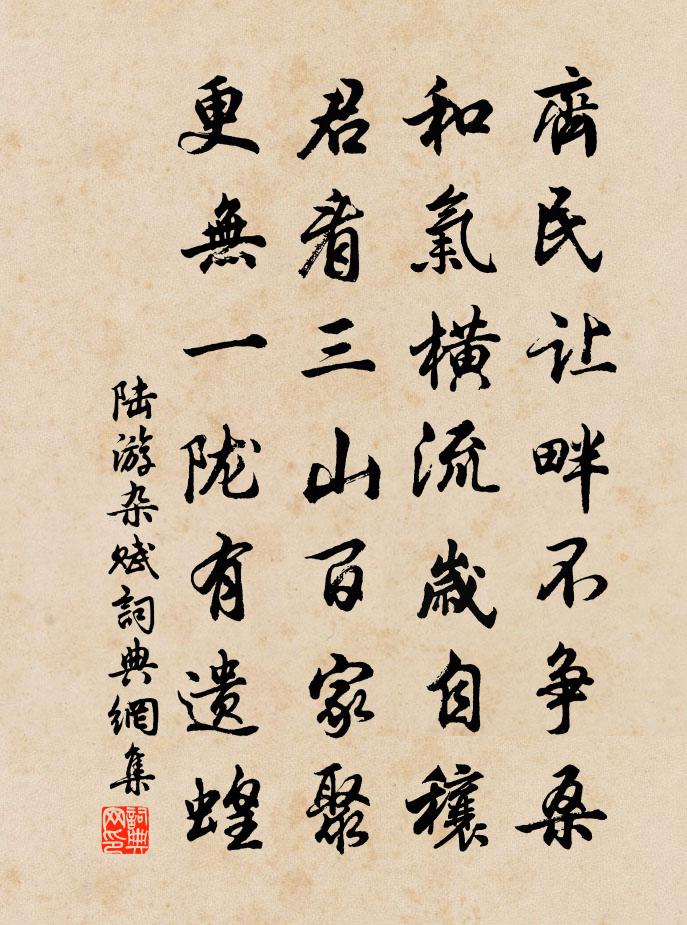 齊民让畔不争桑
和氣橫流歲自穰
君看三山百家聚
更無一陇有遗蝗
陆游杂赋詞典網集
詞典网印